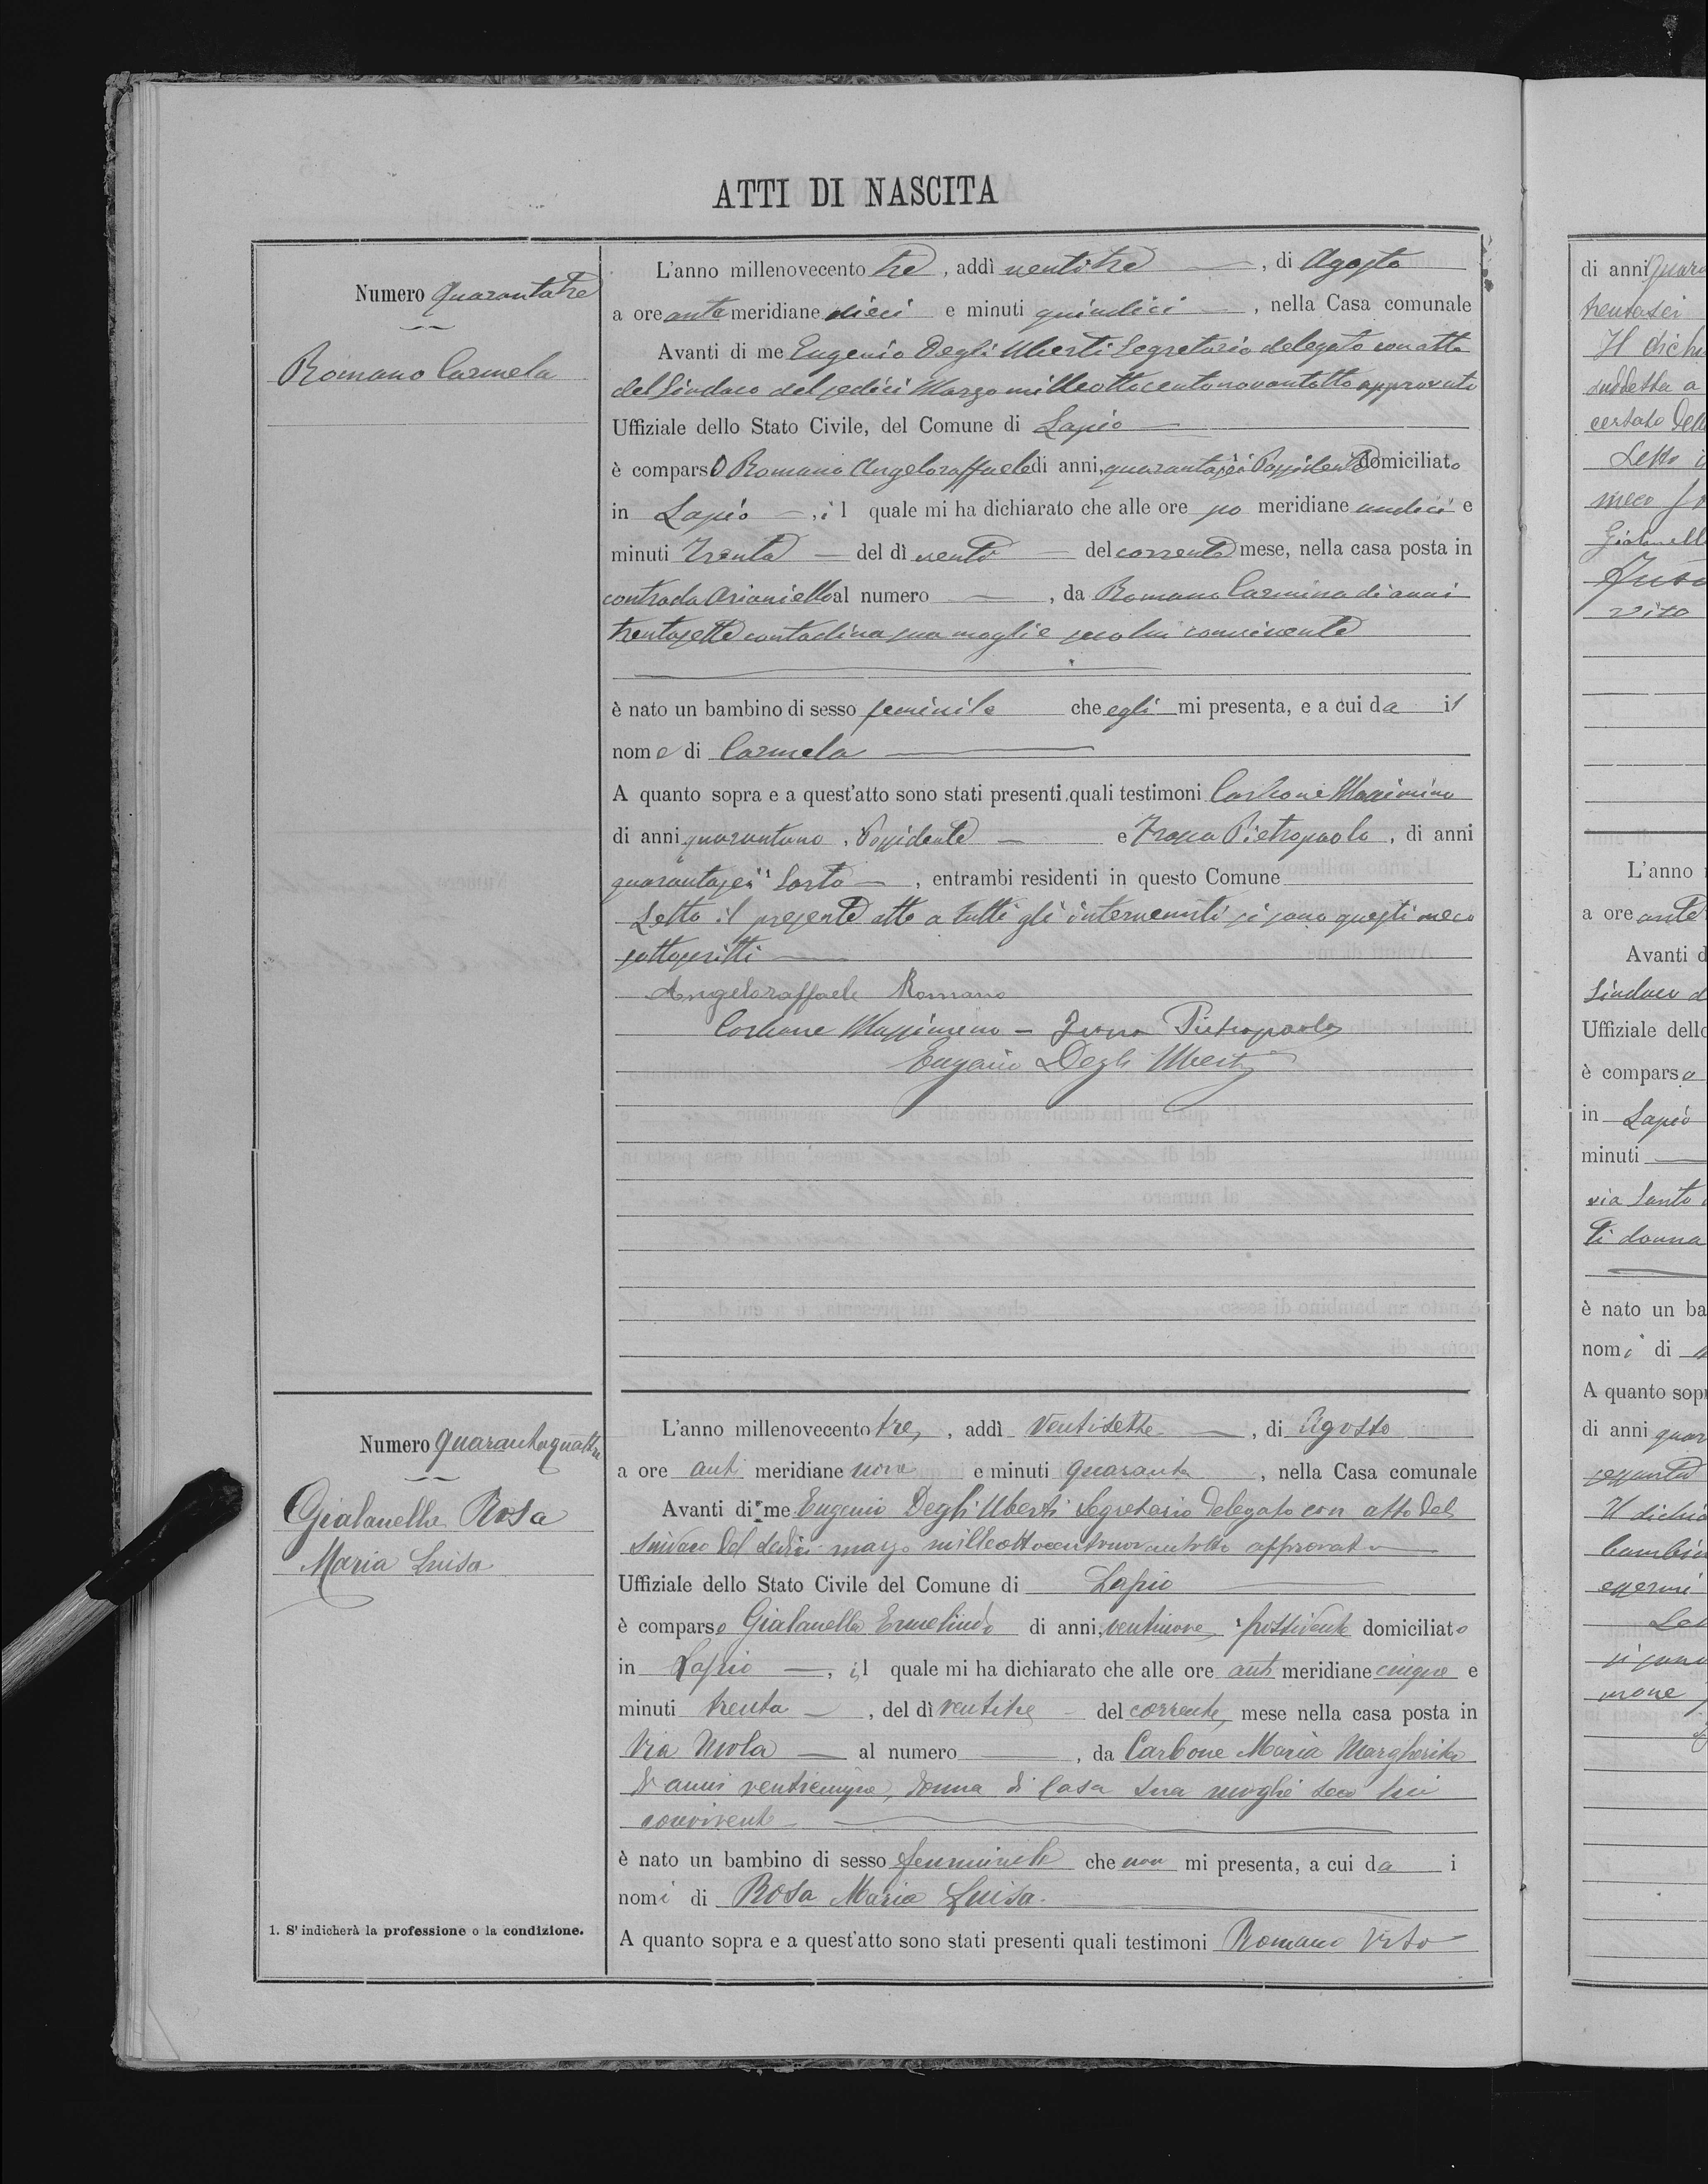 ATTI DI NASCITA
Numero Quarantatre
Romano Carmela
L'anno millenovecento tre, addì ventitre, di Agosto
a ore ante meridiane dieci e minuti quindici, nella Casa comunale
Avanti di me Eugenio Degli Uberti Segretario delegato con atto
del Sindaco del sedici Marzo milleottocentonovantotto approvato
Uffiziale dello Stato Civile, del Comune di Lapio
è comparso Romano Angeloraffaele di anni, quarantasei Possidente domiciliato
in Lapio, il quale mi ha dichiarato che alle ore po meridiane undici e
minuti trenta del dì venti del corrente mese, nella casa posta in
contrada Arianiello al numero, da Romano Carmina di anni
trentasette contadina sua moglie seco lui convivente
è nato un bambino di sesso feminile che egli mi presenta, e a cui da il
nome di Carmela
A quanto sopra e a quest'atto sono stati presenti quali testimoni Carbone Massimino
di anni quarantuno, Possidente e Troya Pietropaolo, di anni
quarantasei Sarto, entrambi residenti in questo Comune
Letto il presente atto a tutti gli intervenuti si sono questi meco
sottoscritti
Angeloraffaele Romano
Carbone Massimino - Pietropaolo
Eugenio Degli Uberti
Numero Quarantaquattro
Gialanella Rosa
Maria Luisa
L'anno millenovecento tre, addì Ventisette, di Agosto
a ore anti meridiane nove e minuti quaranta, nella Casa comunale
Avanti di me Eugenio Degli Uberti Segretario Delegato con atto del
Sindaco del sedici marzo milleottocentonovantotto approvato
Uffiziale dello Stato Civile del Comune di Lapio
è comparso Gialanella Ermelindo di anni, ventinove, possidente domiciliato
in Lapio, il quale mi ha dichiarato che alle ore anti meridiane cinque e
minuti trenta, del dì ventitre del corrente, mese nella casa posta in
Via Mola al numero, da Carbone Maria Margherita
di anni venticinque, donna di Casa sua moglie seco lui
convivente
è nato un bambino di sesso femminile che non mi presenta, a cui da i
nomi di Rosa Maria Luisa
A quanto sopra e a quest'atto sono stati presenti quali testimoni Romano Vito
1. S'indicherà la professione o la condizione.
di anni quara
trentasei
Il dich
suddetta a
certato dell
Letto
meco
vito
L'anno
a ore ante
Avanti d
Sindaco d
Uffiziale dello
è comparso
in Lapio
minuti
via Santo
ti donna
è nato un ba
nomi di
A quanto sopr
di anni quar
Il dichia
bambin
essermi